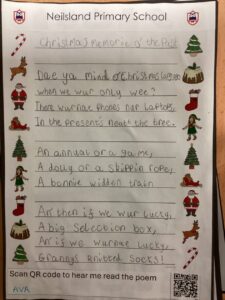 Neilsland Primary School
Christmas Memories o' the Past
Dae ya mind o Christmas lang ago
when we wur only wee?
There wurnae phones nor laptops,
In the presents neath the tree.
An annual or a game,
A dolly or a skippin rope,
A bonnie widden train
An then if we wur lucky,
A big selection box,
An if we wurnae lucky,
Grannys knitted socks!
Scan QR code to hear me read the poem
AVA